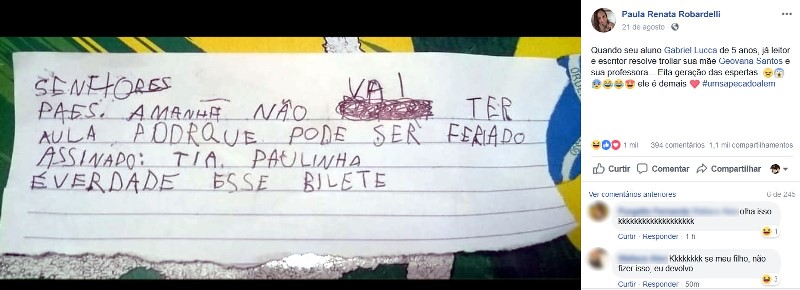 SENHORES
PAES. AMANHÃ NÃO VAI TER
AULA PODRQUE PODE SER FERIADO
ASSINADO: TIA PAULINHA
É VERDADE ESSE BILETE
Paula Renata Robardelli
21 de agosto
Quando seu aluno Gabriel Lucca de 5 anos, já leitor
e escritor resolve trollar sua mãe Geovana Santos e
sua professora... Eita geração das espertas 😜😱
😰😂😂😍 ele é demais ❤ #umsapecadoalem
1 mil 394 comentários 1,1 mil compartilhamentos
Curtir Comentar Compartilhar
Ver comentários anteriores 6 de 245
olha isso
kkkkkkkkkkkkkkkkkkk
1
Curtir · Responder · 1 h
Kkkkkkkk se meu filho, não
fizer isso, eu devolvo
3
Curtir · Responder · 50m